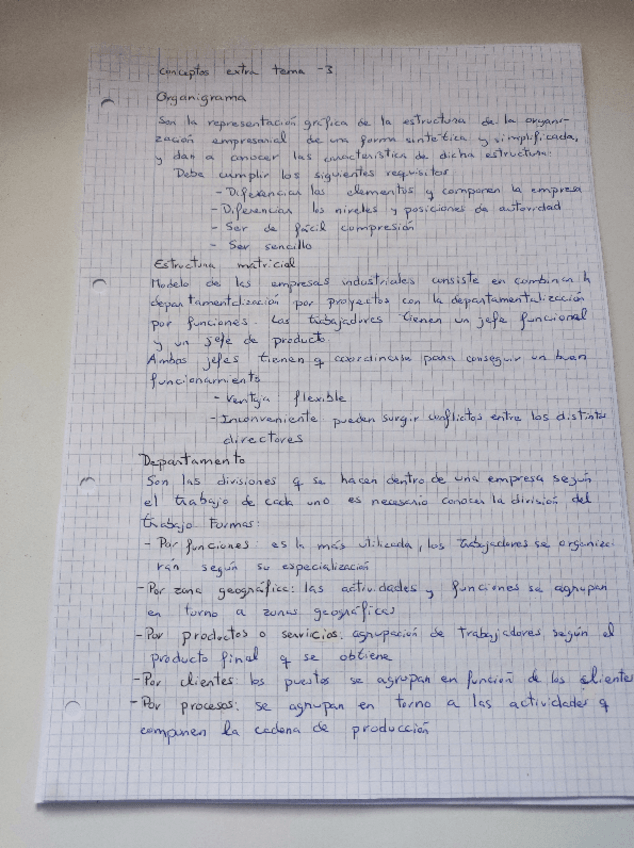 Conceptos extra tema -3
Organigrama
Son la representación gráfica de la estructura de la organi-
zación empresarial de una forma sintética y simplificada,
y dan a conocer las característica de dicha estructura.
Debe cumplir los siguientes requisitos
- Diferenciar los elementos q componen la empresa
- Diferenciar los niveles y posiciones de autoridad
- Ser de fácil compresión
- Ser sencillo
Estructura matricial
Modelo de las empresas industriales consiste en combinar la
departamentalización por proyectos con la departamentalización
por funciones. Los trabajadores tienen un jefe funcional
y un jefe de producto.
Ambos jefes tienen q coordinarse para conseguir un buen
funcionamiento
- Ventaja flexible
- Inconveniente pueden surgir conflictos entre los distintos
directores
Departamento
Son las divisiones q se hacen dentro de una empresa según
el trabajo de cada uno es necesario conocer la división del
trabajo Formas:
- Por funciones: es la más utilizada, los trabajadores se organiza-
rán según su especialización
- Por zona geográfica: las actividades y funciones se agrupan
en torno a zonas geográficas
- Por productos o servicios: agrupación de trabajadores según el
producto final q se obtiene
- Por clientes: los puestos se agrupan en función de los clientes
- Por procesos: se agrupan en torno a las actividades q
componen la cadena de producción